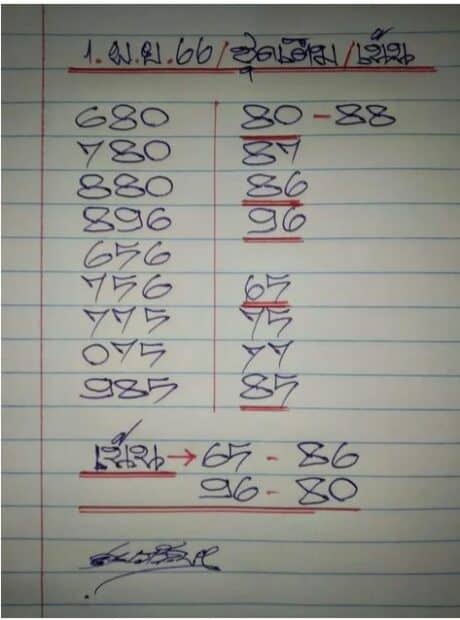 1.เม.ย.66/ชุดเดิม/เน้น
680 80-88
780 87
880 86
896 96
656
756 65
775 75
075 77
985 85
เน้น→65-86
96-80